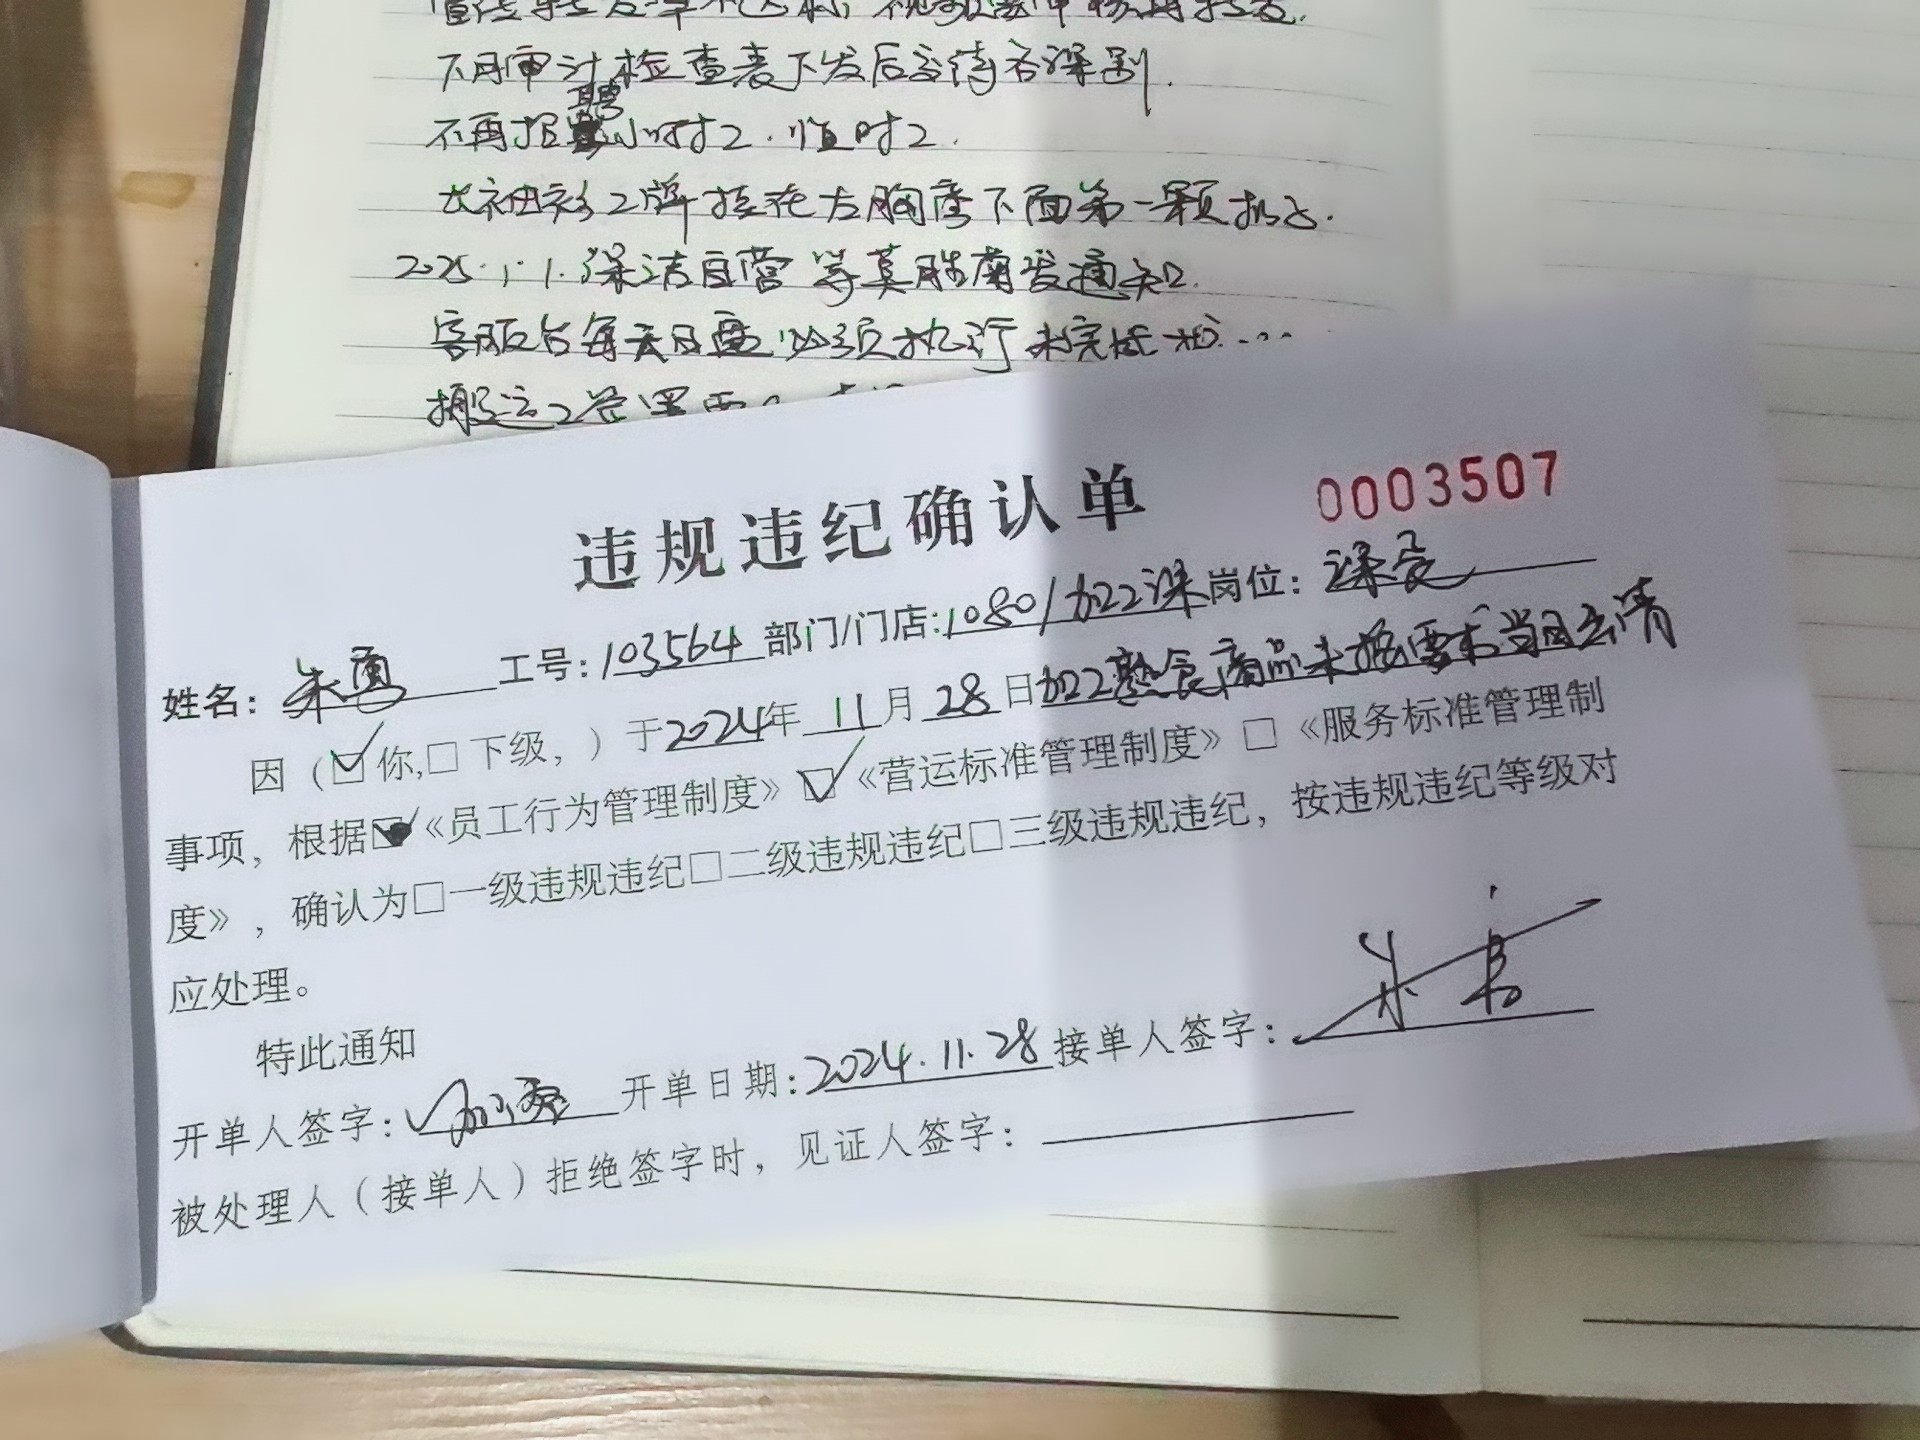 下月审计检查表下发后交待各课别.
不再招聘小时工.临时工.
长袖衫工牌挂在左胸房下面第一颗扣子.
2025.1.1.保洁自营 等莫胜南发通知.
客服台每天日盘必须执行 未完成一城...
搬运工
违规违纪确认单 0003507
姓名: 朱 工号:103564 部门/门店:1080/加工课 岗位:课长
因(☑你,□下级,)于2024年 11月 28日加工熟食商品未按要求当日出清
事项,根据☑《员工行为管理制度》☑《营运标准管理制度》□《服务标准管理制
度》,确认为□一级违规违纪□二级违规违纪□三级违规违纪,按违规违纪等级对
应处理。
特此通知
开单人签字: 开单日期:2024.11.28 接单人签字: 朱
被处理人(接单人)拒绝签字时,见证人签字: